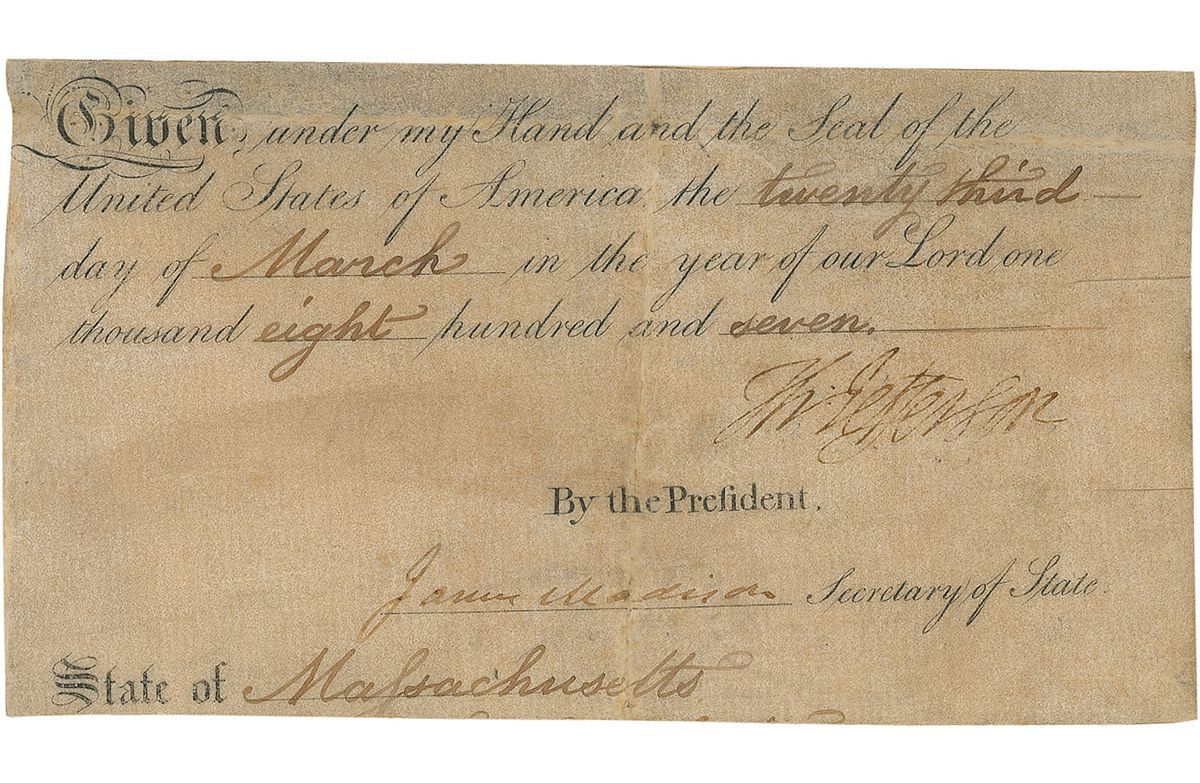 Given, under my Hand and the Seal of the
United States of America the twenty third
day of March in the year of our Lord one
thousand eight hundred and seven.
Th: Jefferson
By the Preſident,
James Madison Secretary of State.
State of Maſsachusetts